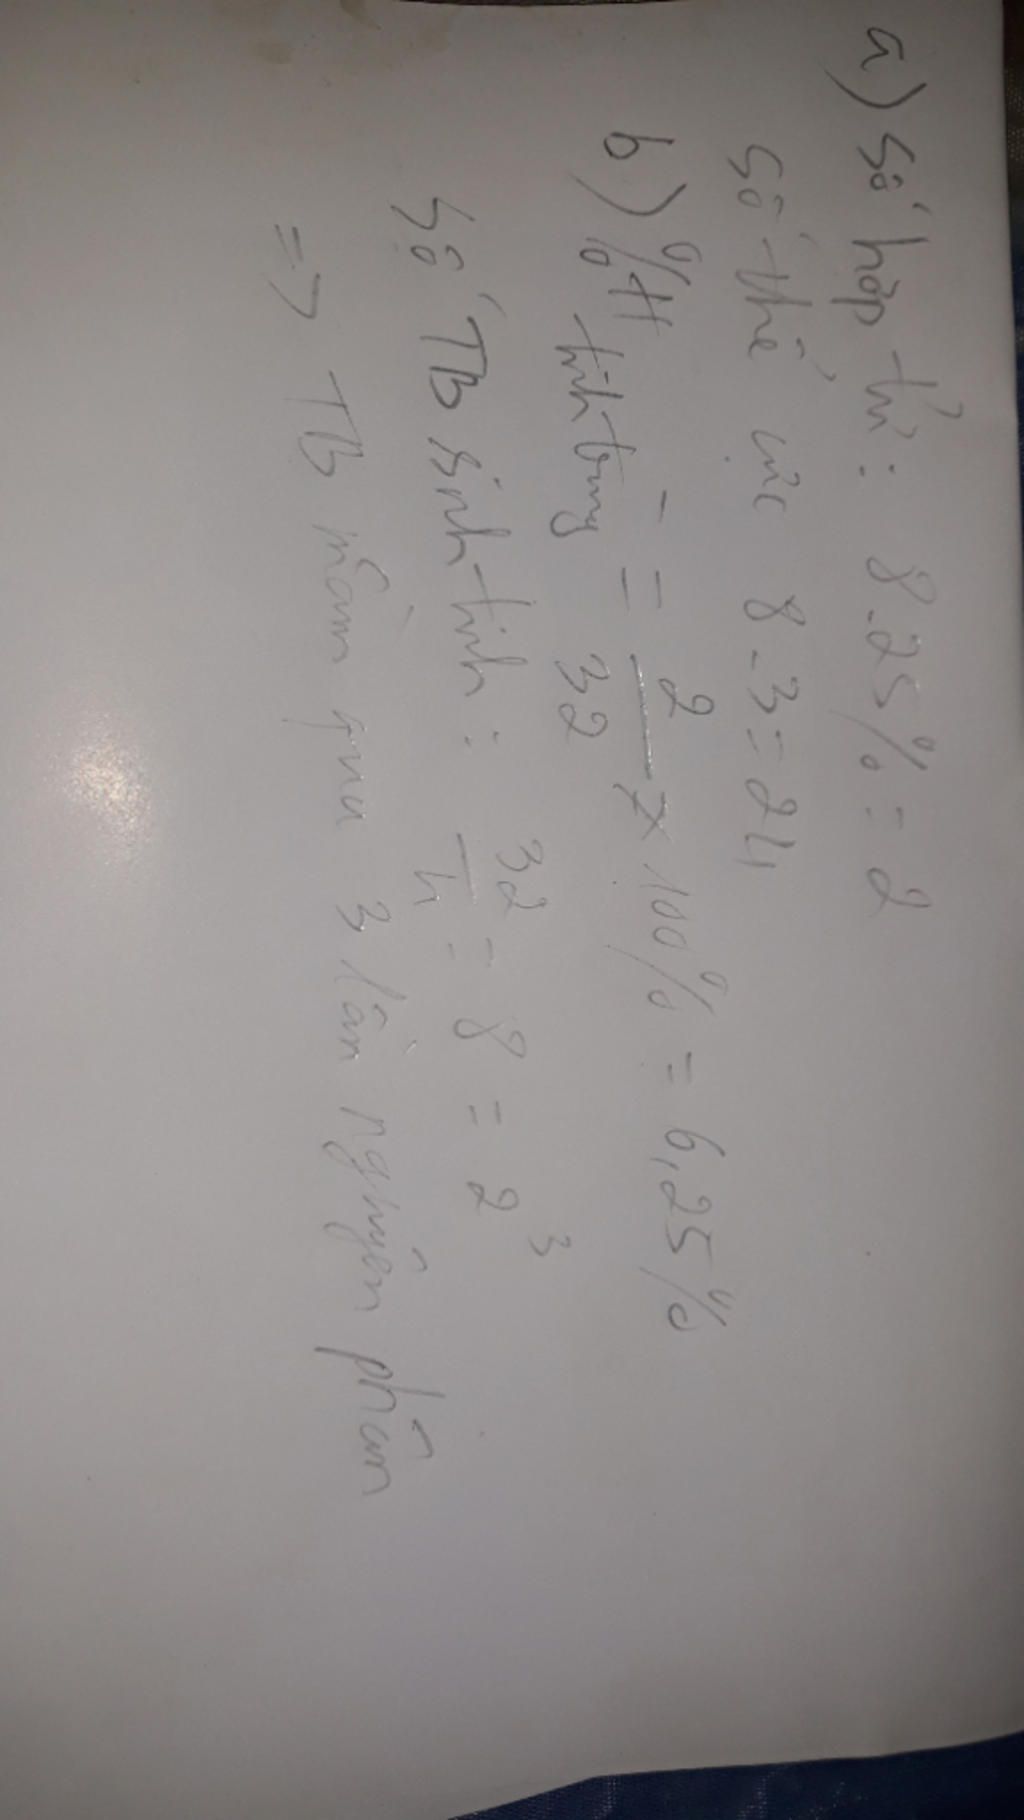 a) Số hợp tử: 8.25% = 2
Số thể cực 8.3 = 24
b) %H tinh trùng = 2/32 x 100% = 6,25%
Số TB sinh tinh: 32/4 = 8 = 2^3
=> TB mầm qua 3 lần nguyên phân